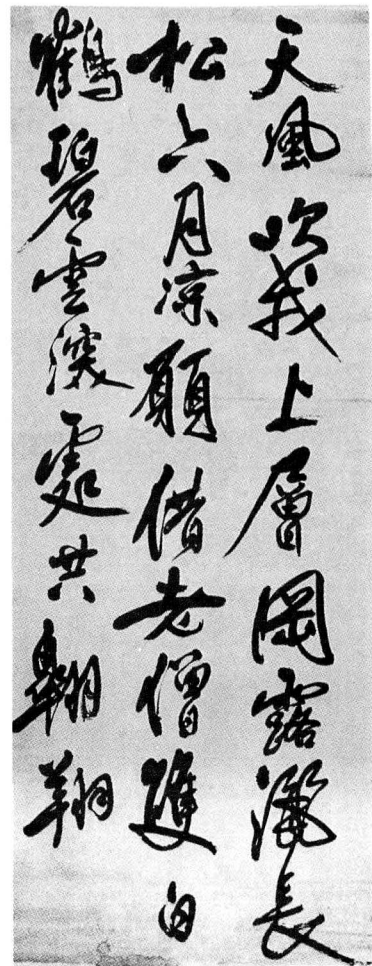 天風吹我上層岡露灑長
松六月涼願借老僧雙白
鶴碧雲深處共翱翔